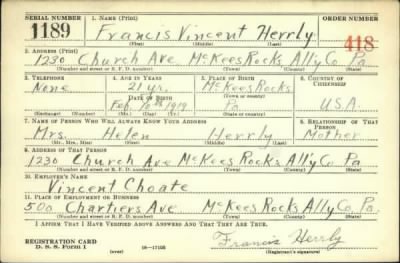 SERIAL NUMBER 1. NAME (Print) ORDER NUMBER
1189 Francis Vincent Herrly 418
(First) (Middle) (Last)
2. ADDRESS (Print)
1230 Church Ave McKees Rocks Ally Co Pa
(Number and street or R. F. D. number) (Town) (County) (State)
3. TELEPHONE 4. AGE IN YEARS 5. PLACE OF BIRTH 6. COUNTRY OF CITIZENSHIP
None 21 yr. McKees Rocks
DATE OF BIRTH (Town or county)
Feb 1919 Pa U.S.A.
(Exchange) (Number) (Mo.) (Day) (Yr.) (State or country)
7. NAME OF PERSON WHO WILL ALWAYS KNOW YOUR ADDRESS 8. RELATIONSHIP OF THAT PERSON
Mrs. Helen Herrly Mother
(Mr., Mrs., Miss) (First) (Middle) (Last)
9. ADDRESS OF THAT PERSON
1230 Church Ave McKees Rocks Ally Co Pa
(Number and street or R. F. D. number) (Town) (County) (State)
10. EMPLOYER'S NAME
Vincent Choate
11. PLACE OF EMPLOYMENT OR BUSINESS
500 Chartiers Ave McKees Rocks Ally Co. Pa.
(Number and street or R. F. D. number) (Town) (County) (State)
I AFFIRM THAT I HAVE VERIFIED ABOVE ANSWERS AND THAT THEY ARE TRUE.
REGISTRATION CARD Francis Herrly
D. S. S. Form 1 (over) 16—17105 (Registrant's signature)